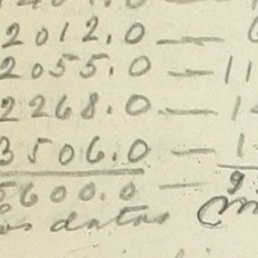 2012.0 —
2055.0 — 11
2268.0 — 1
3506.0 — 1
5600.0 — 9
los datos